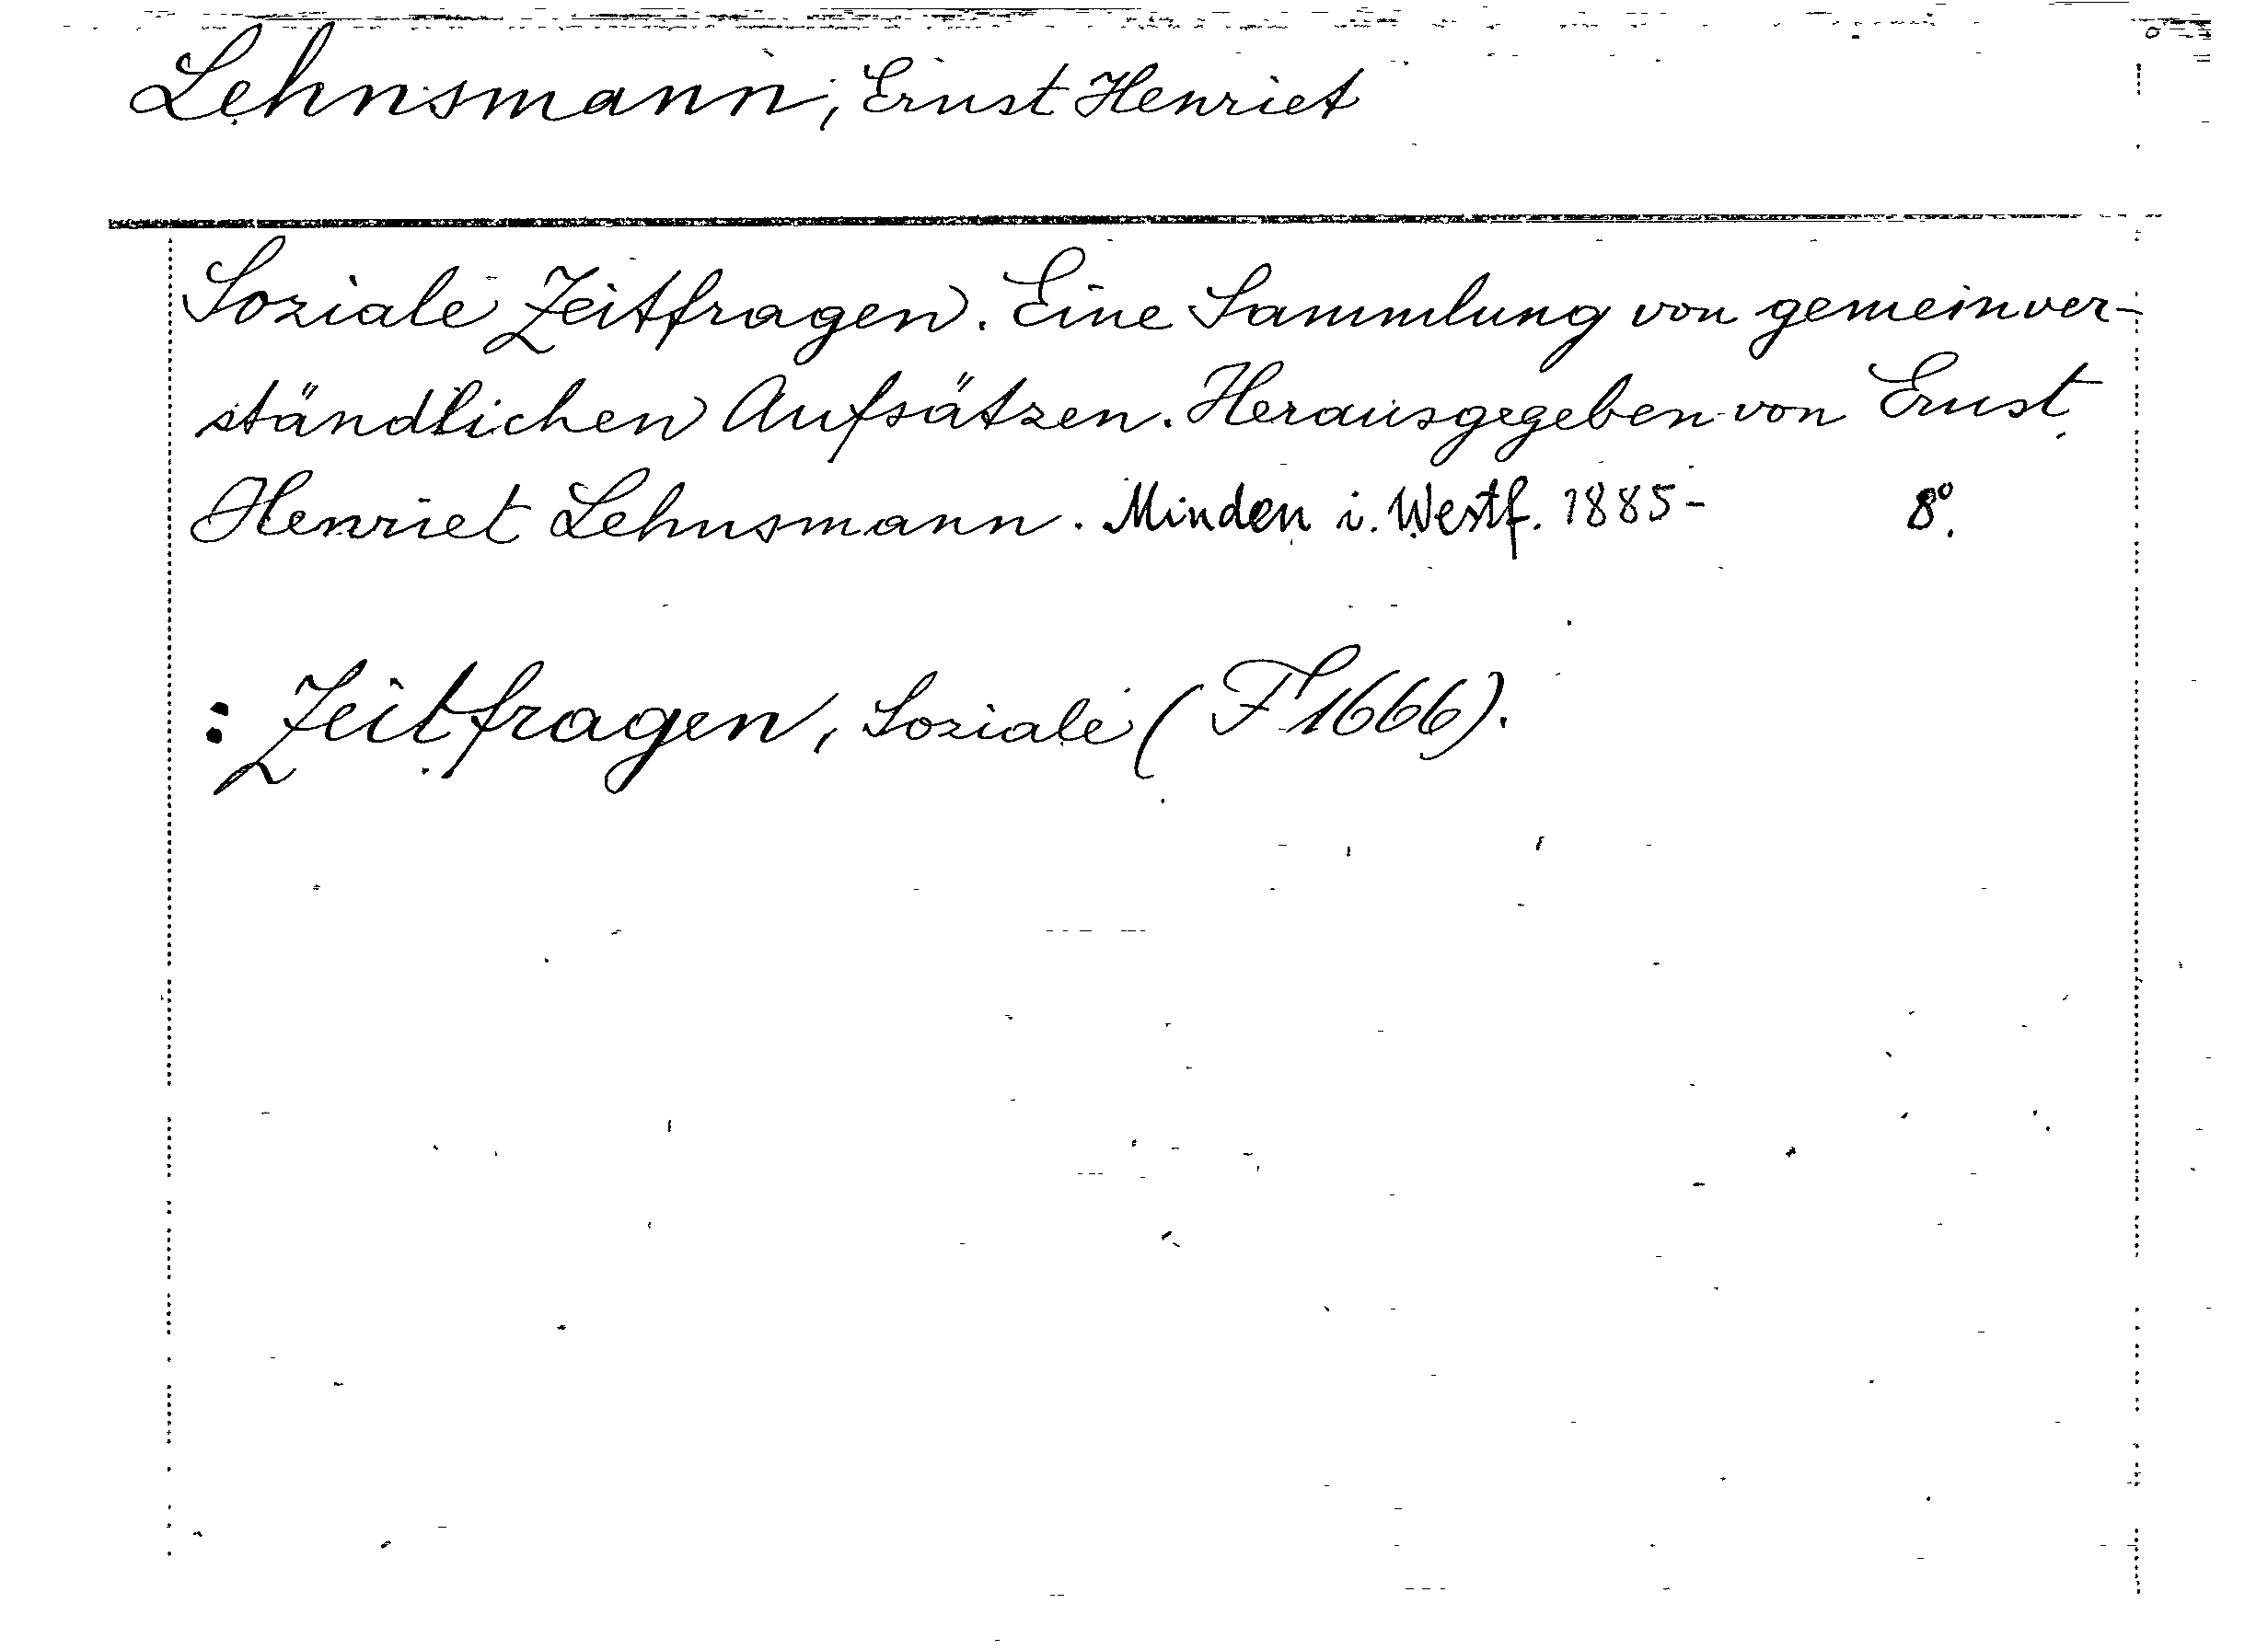 Lehnsmann, Ernst Henriet
Soziale Zeitfragen. Eine Sammlung von gemeinver-
ständlichen Aufsätzen. Herausgegeben von Ernst
Henriet Lehnsmann. Minden i. Westf. 1885- 8°.
: Zeitfragen, Soziale (F 1666).